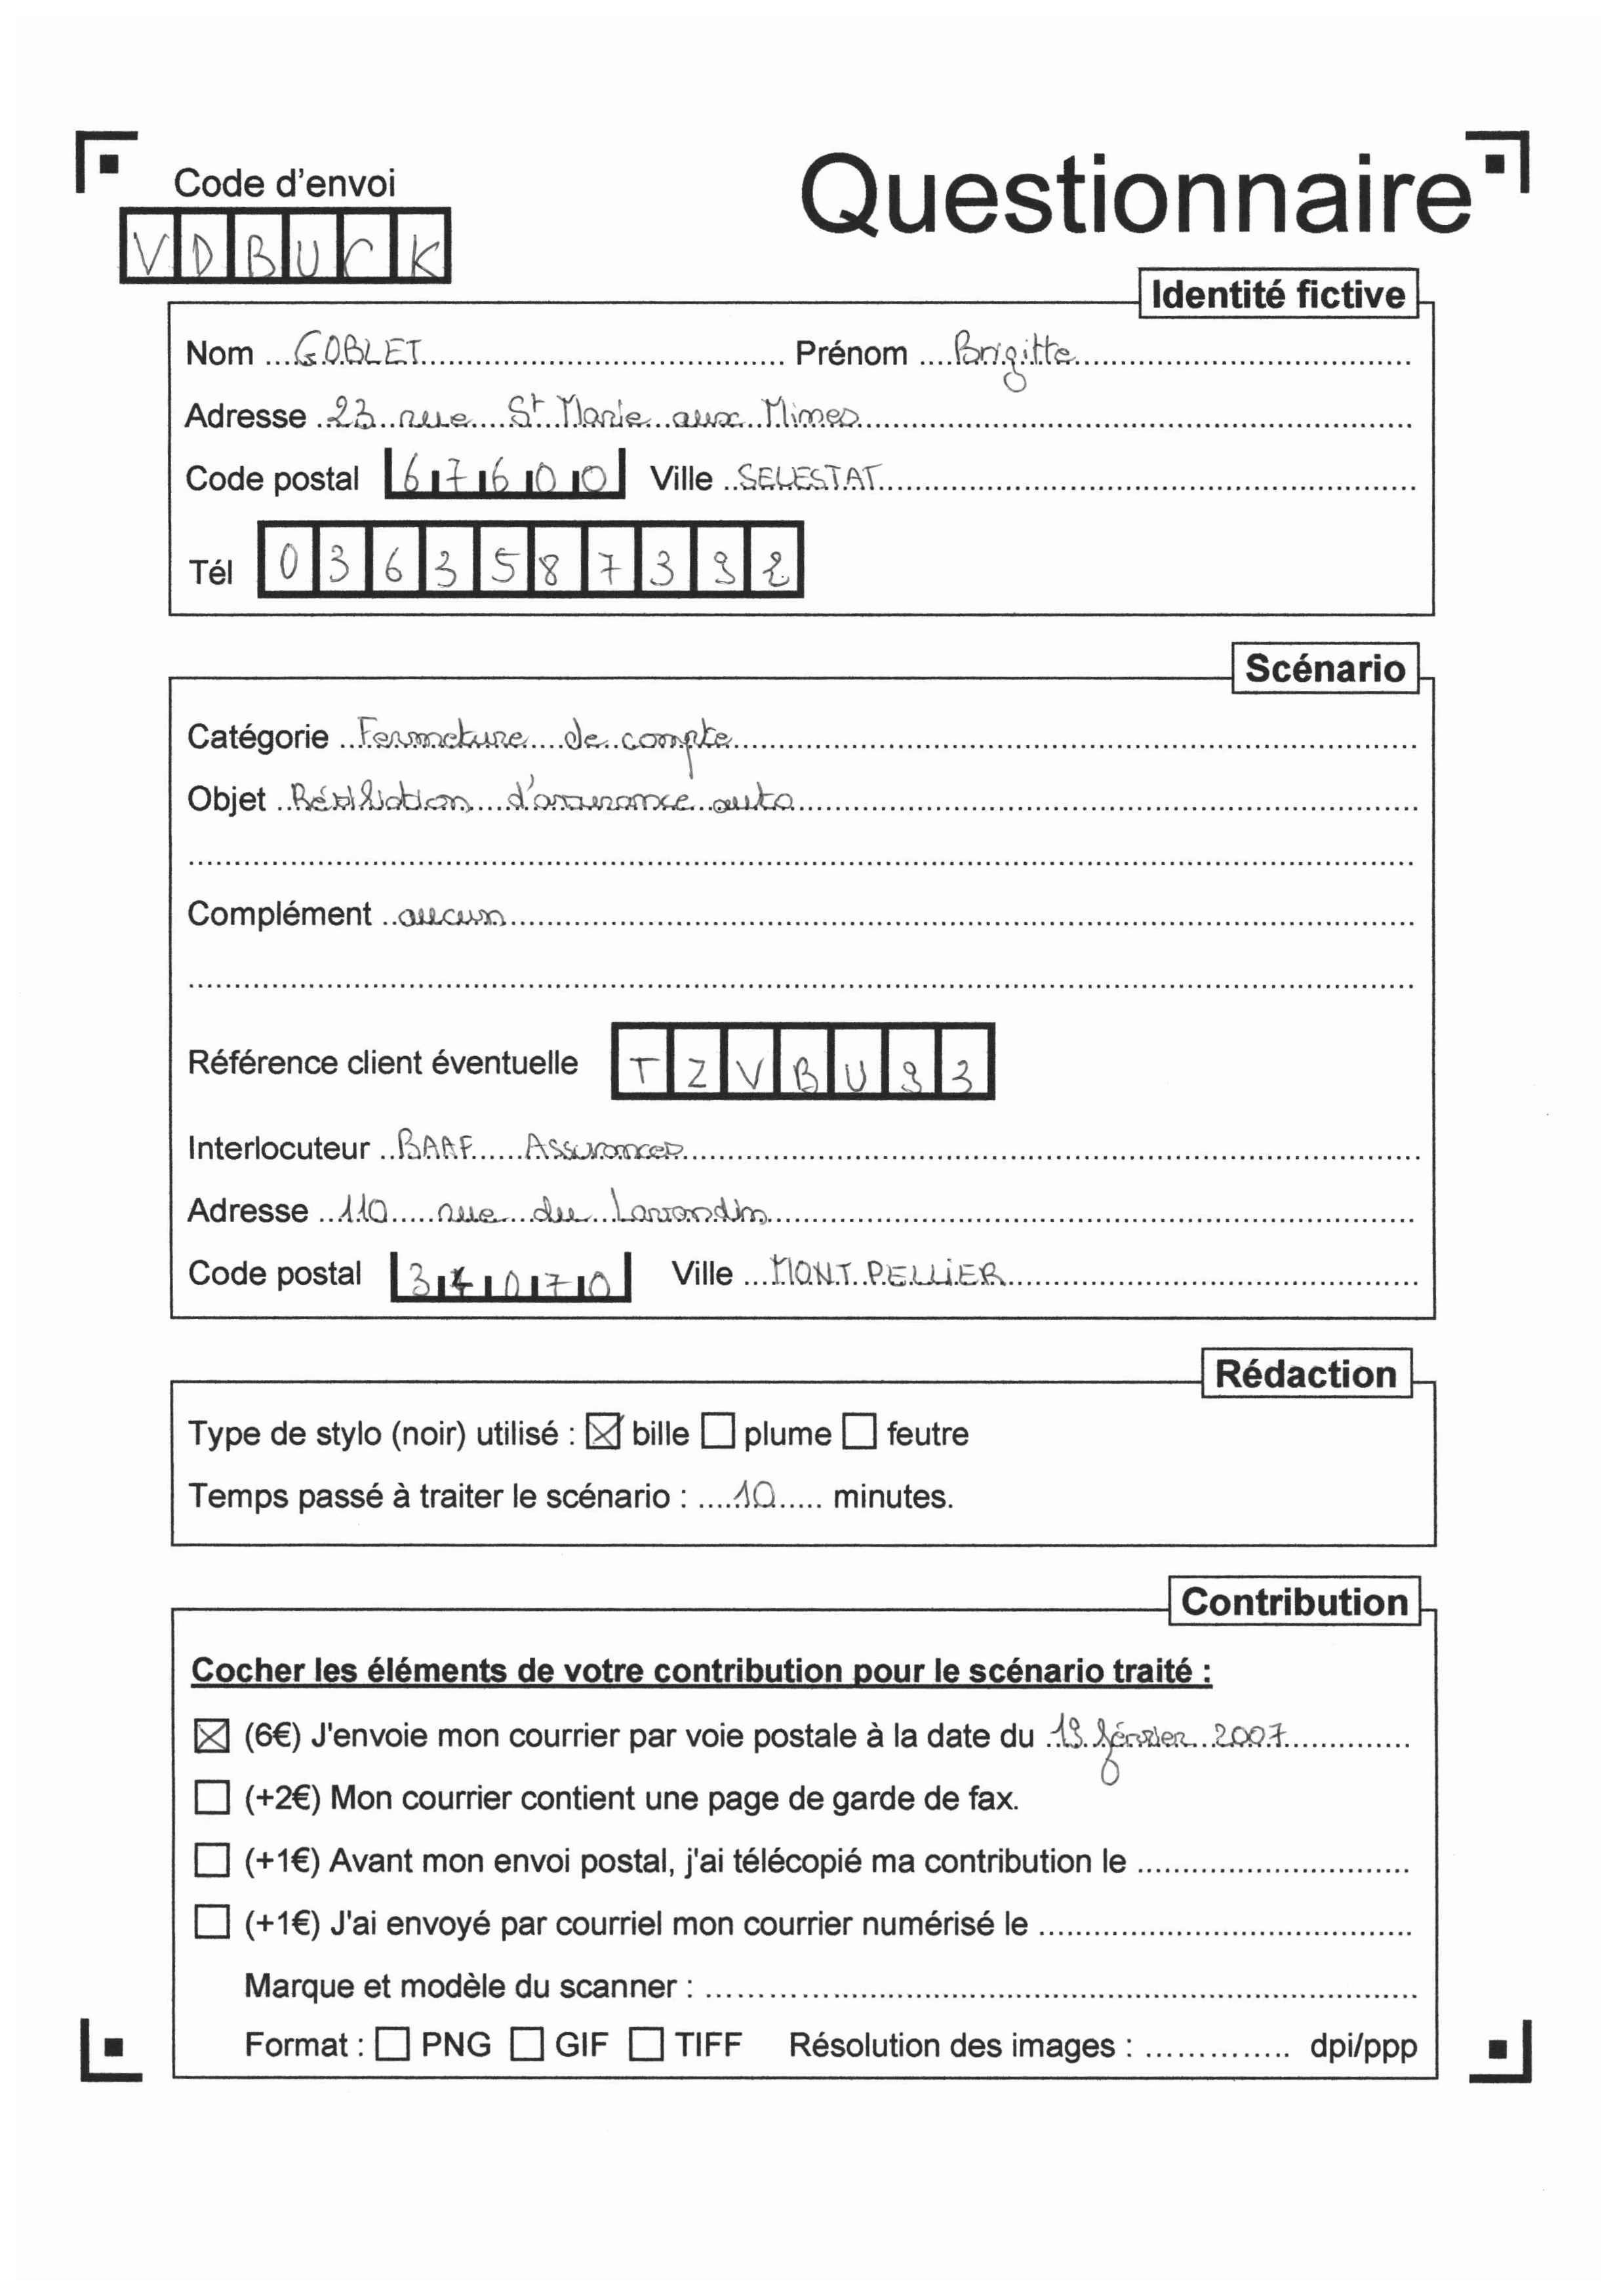 Code d'envoi
Questionnaire
VDBUCK
Identité fictive
Nom GOBLET Prénom Brigitte
Adresse 23 rue St Marie aux Mimes
Code postal 67600 Ville SELESTAT
Tél 0363587392
Scénario
Catégorie Fermeture de compte
Objet Résiliation d'assurance auto
Complément aucun
Référence client éventuelle TZVBU93
Interlocuteur BAAF Assurances
Adresse 110 rue du Lavandin
Code postal 34070 Ville MONTPELLIER
Rédaction
Type de stylo (noir) utilisé : ☒ bille ☐ plume ☐ feutre
Temps passé à traiter le scénario : 10 minutes.
Contribution
Cocher les éléments de votre contribution pour le scénario traité :
☒ (6€) J'envoie mon courrier par voie postale à la date du 19 février 2007
☐ (+2€) Mon courrier contient une page de garde de fax.
☐ (+1€) Avant mon envoi postal, j'ai télécopié ma contribution le
☐ (+1€) J'ai envoyé par courriel mon courrier numérisé le
Marque et modèle du scanner :
Format : ☐ PNG ☐ GIF ☐ TIFF Résolution des images : dpi/ppp